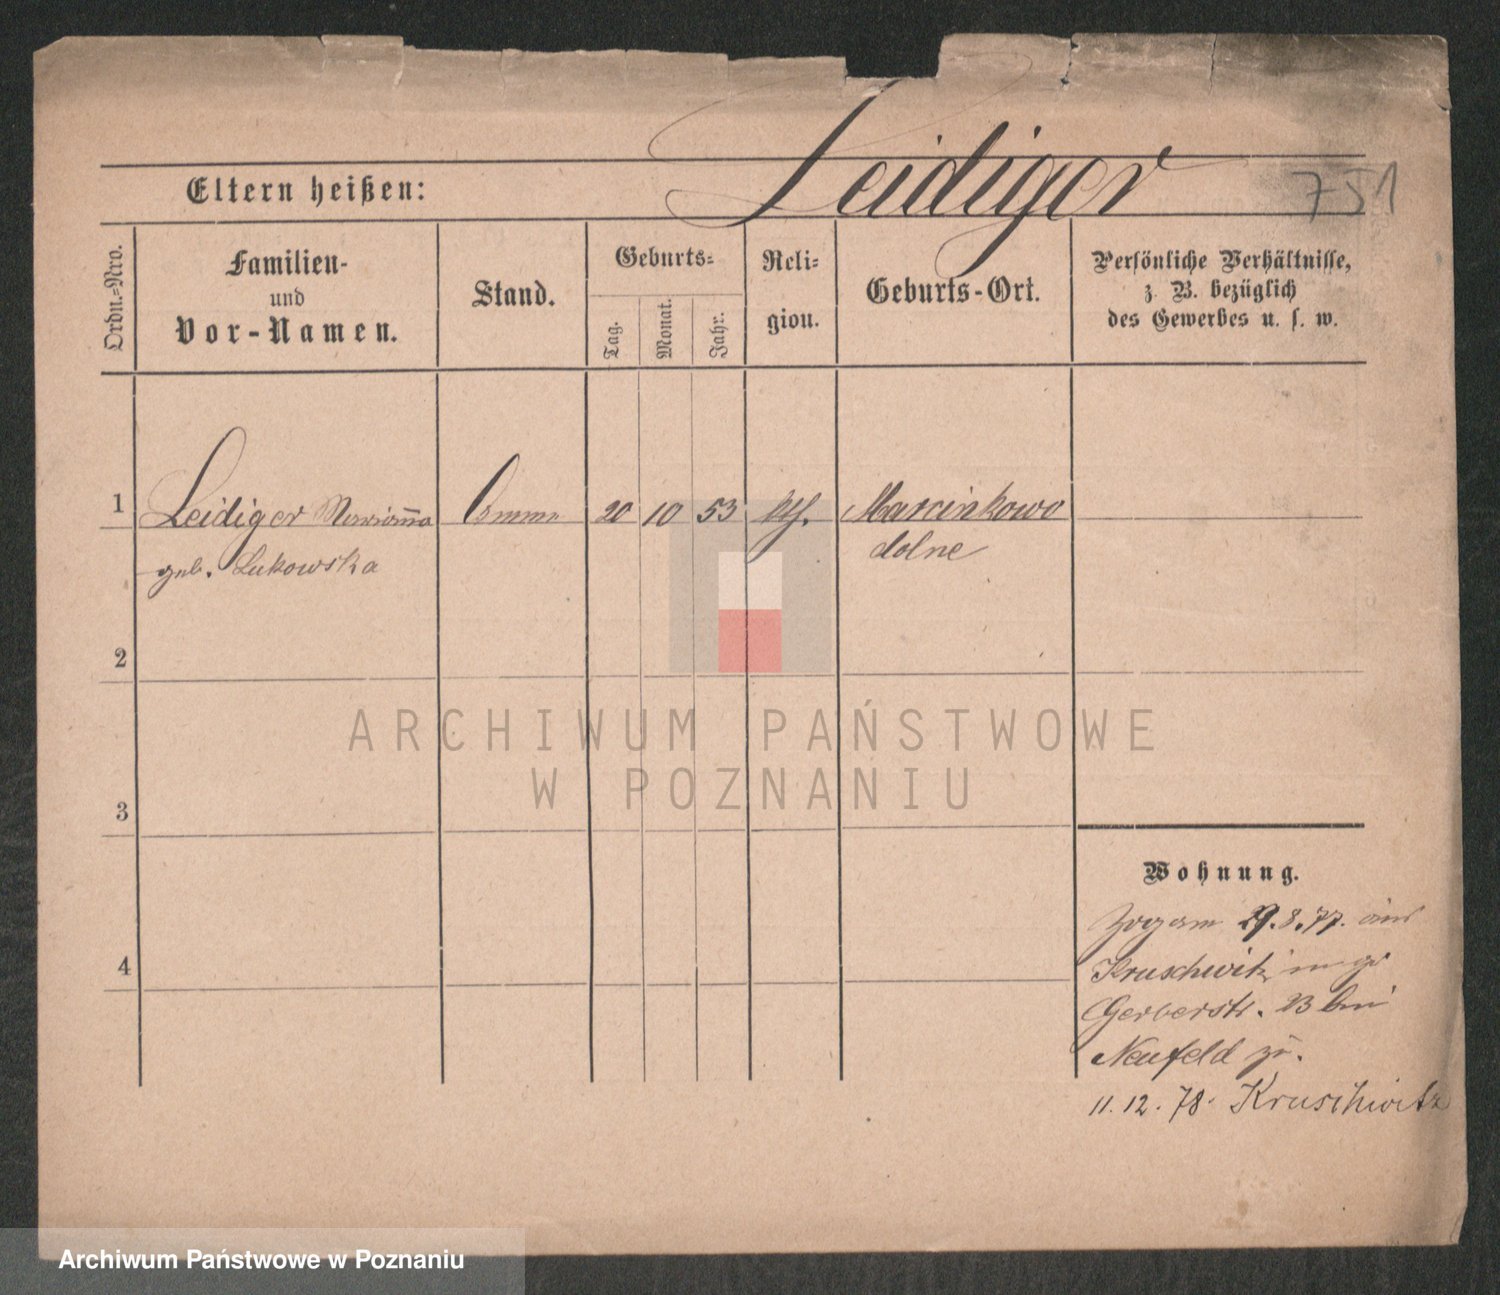 Leidiger
751
Eltern heißen:
Ordn.-Nro.
Familien-
und
Vor-Namen.
Stand.
Geburts-
Tag.
Monat.
Jahr.
Reli-
gion.
Geburts-Ort.
Persönliche Verhältnisse,
z. B. bezüglich
des Gewerbes u. s. w.
1 Leidiger Marianna 20 10 53 kth. Marcinkowo
geb. Lukowska dolne
2
3
4
ARCHIWUM PAŃSTWOWE
W POZNANIU
Wohnung.
Zog am 29.8.77. aus
Kruschwitz
Gerberstr. 23 bei
Neufeld zu.
11.12.78. Kruschwitz
Archiwum Państwowe w Poznaniu